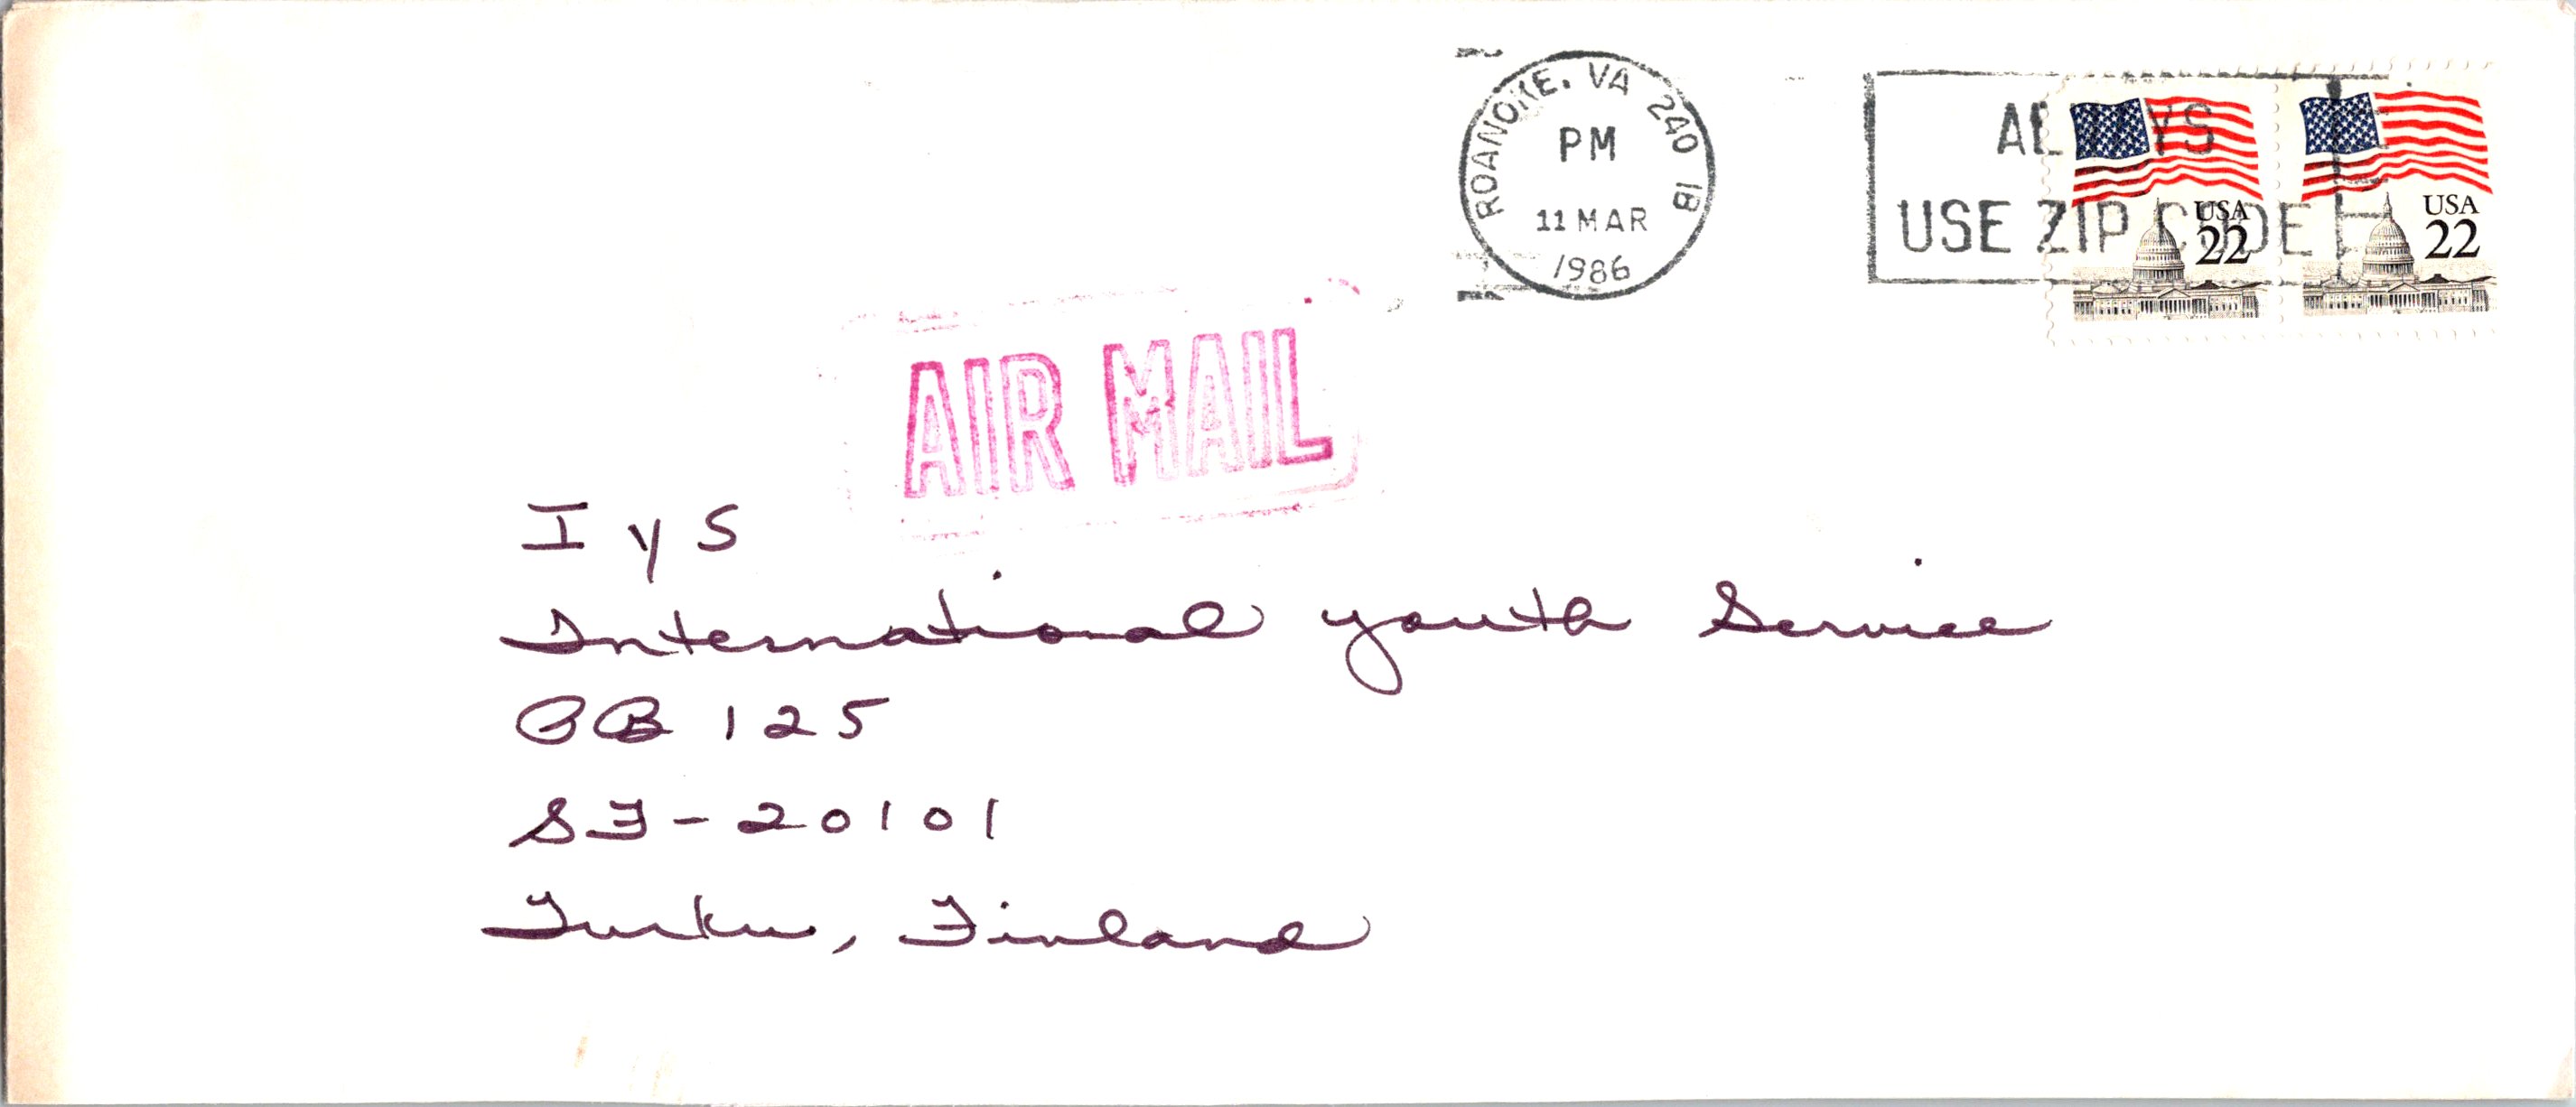 ROANOKE, VA 240 1B
PM
11 MAR
1986
ALWAYS
USE ZIP CODE
USA
22
USA
22
AIR MAIL
I y S
International youth Service
PB 125
SF-20101
Turku, Finland